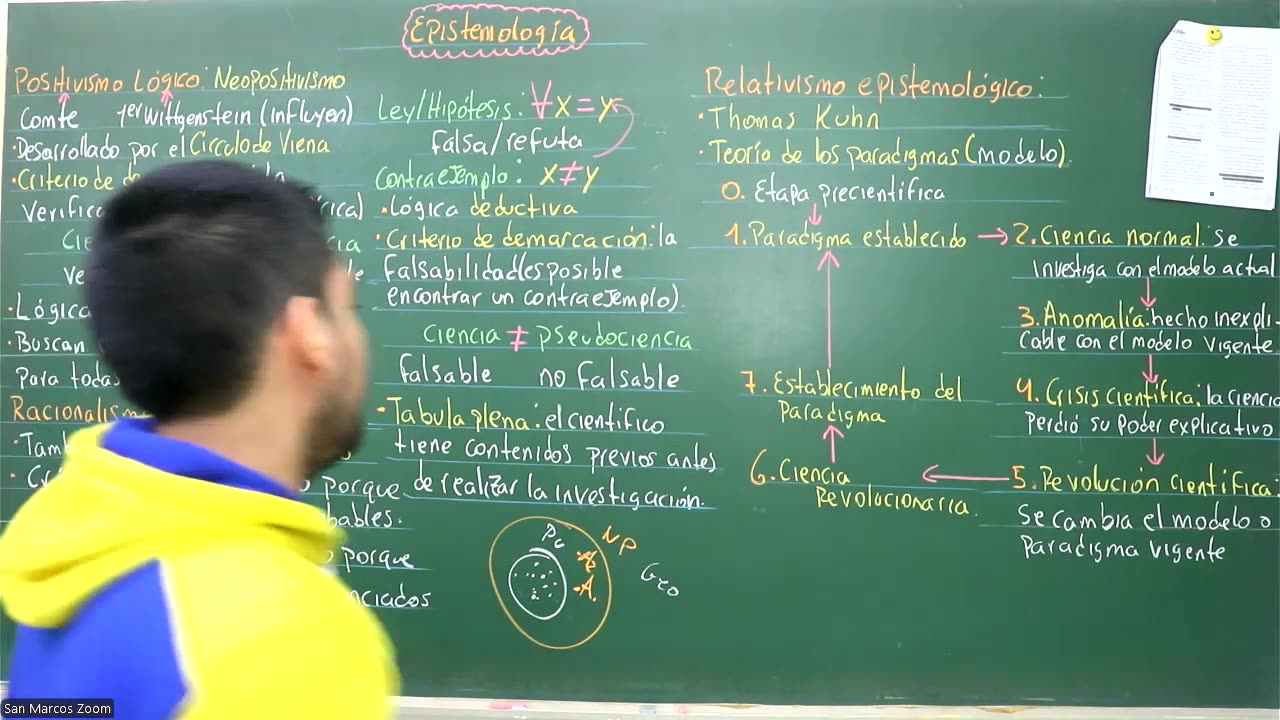 Epistemología
Positivismo Lógico: Neopositivismo
Comte 1er Wittgenstein (influyen)
•Desarrollado por el Círculo de Viena
•Criterio de
Verific
•Lógica
•Buscan
Para todas
Racionalism
porque
porque
nciados
Ley/Hipótesis: ∀x = y
Falsa/refuta
Contraejemplo: x ≠ y
•Lógica deductiva
•Criterio de demarcación: la
Falsabilidad (es posible
encontrar un contraejemplo).
Ciencia ≠ pseudociencia
falsable no falsable
•Tabula plena: el científico
tiene contenidos previos antes
de realizar la investigación.
NP
Relativismo epistemológico:
•Thomas Kuhn
•Teoría de los paradigmas (modelo).
0. Etapa precientífica
1. Paradigma establecido → 2. Ciencia normal: se
investiga con el modelo actual
3. Anomalía: hecho inexpli
cable con el modelo vigente
4. Crisis científica: la ciencia
perdió su poder explicativo
5. Revolución científica:
Se cambia el modelo o
Paradigma vigente
6. Ciencia
Revolucionaria.
7. Establecimiento del
Paradigma
San Marcos Zoom